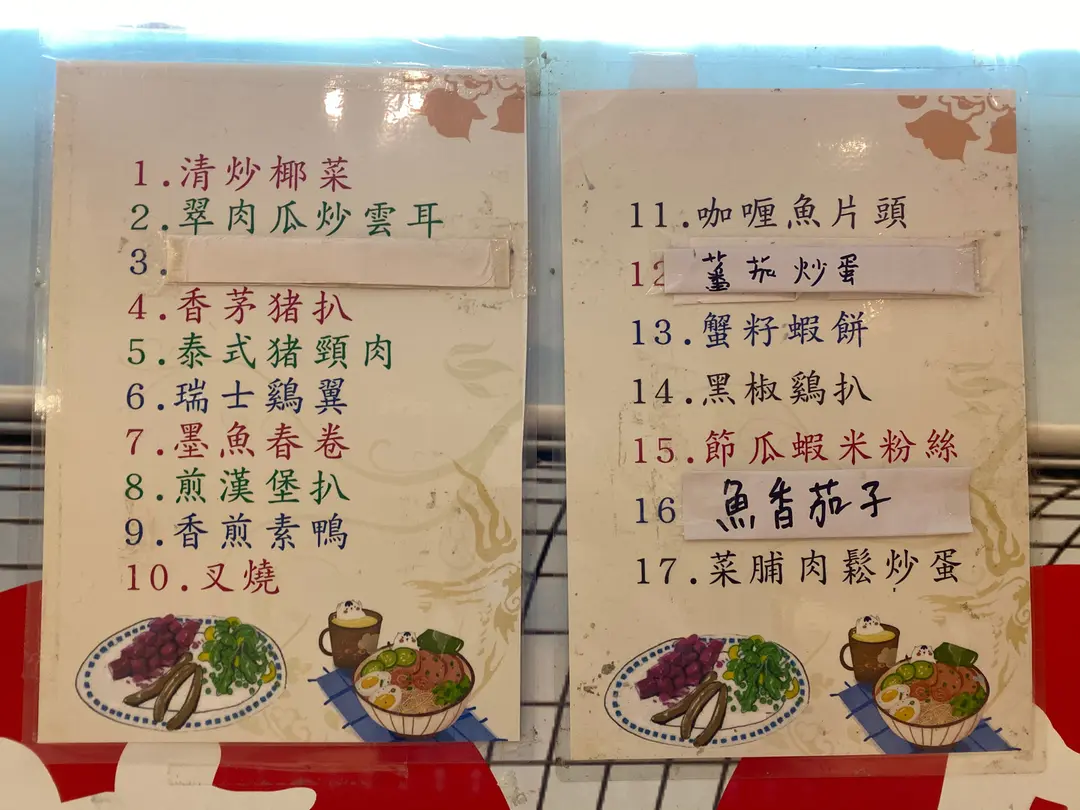 1.清炒椰菜
2.翠肉瓜炒雲耳
3.
4.香茅猪扒
5.泰式猪頸肉
6.瑞士鷄翼
7.墨魚春卷
8.煎漢堡扒
9.香煎素鴨
10.叉燒
11.咖喱魚片頭
12 蕃茄炒蛋
13.蟹籽蝦餅
14.黑椒鷄扒
15.節瓜蝦米粉絲
16 魚香茄子
17.菜脯肉鬆炒蛋